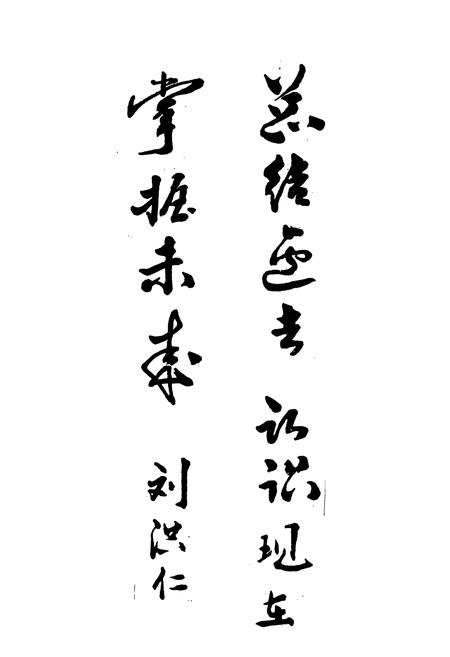 总结过去 认识现在
掌握未来 刘洪仁